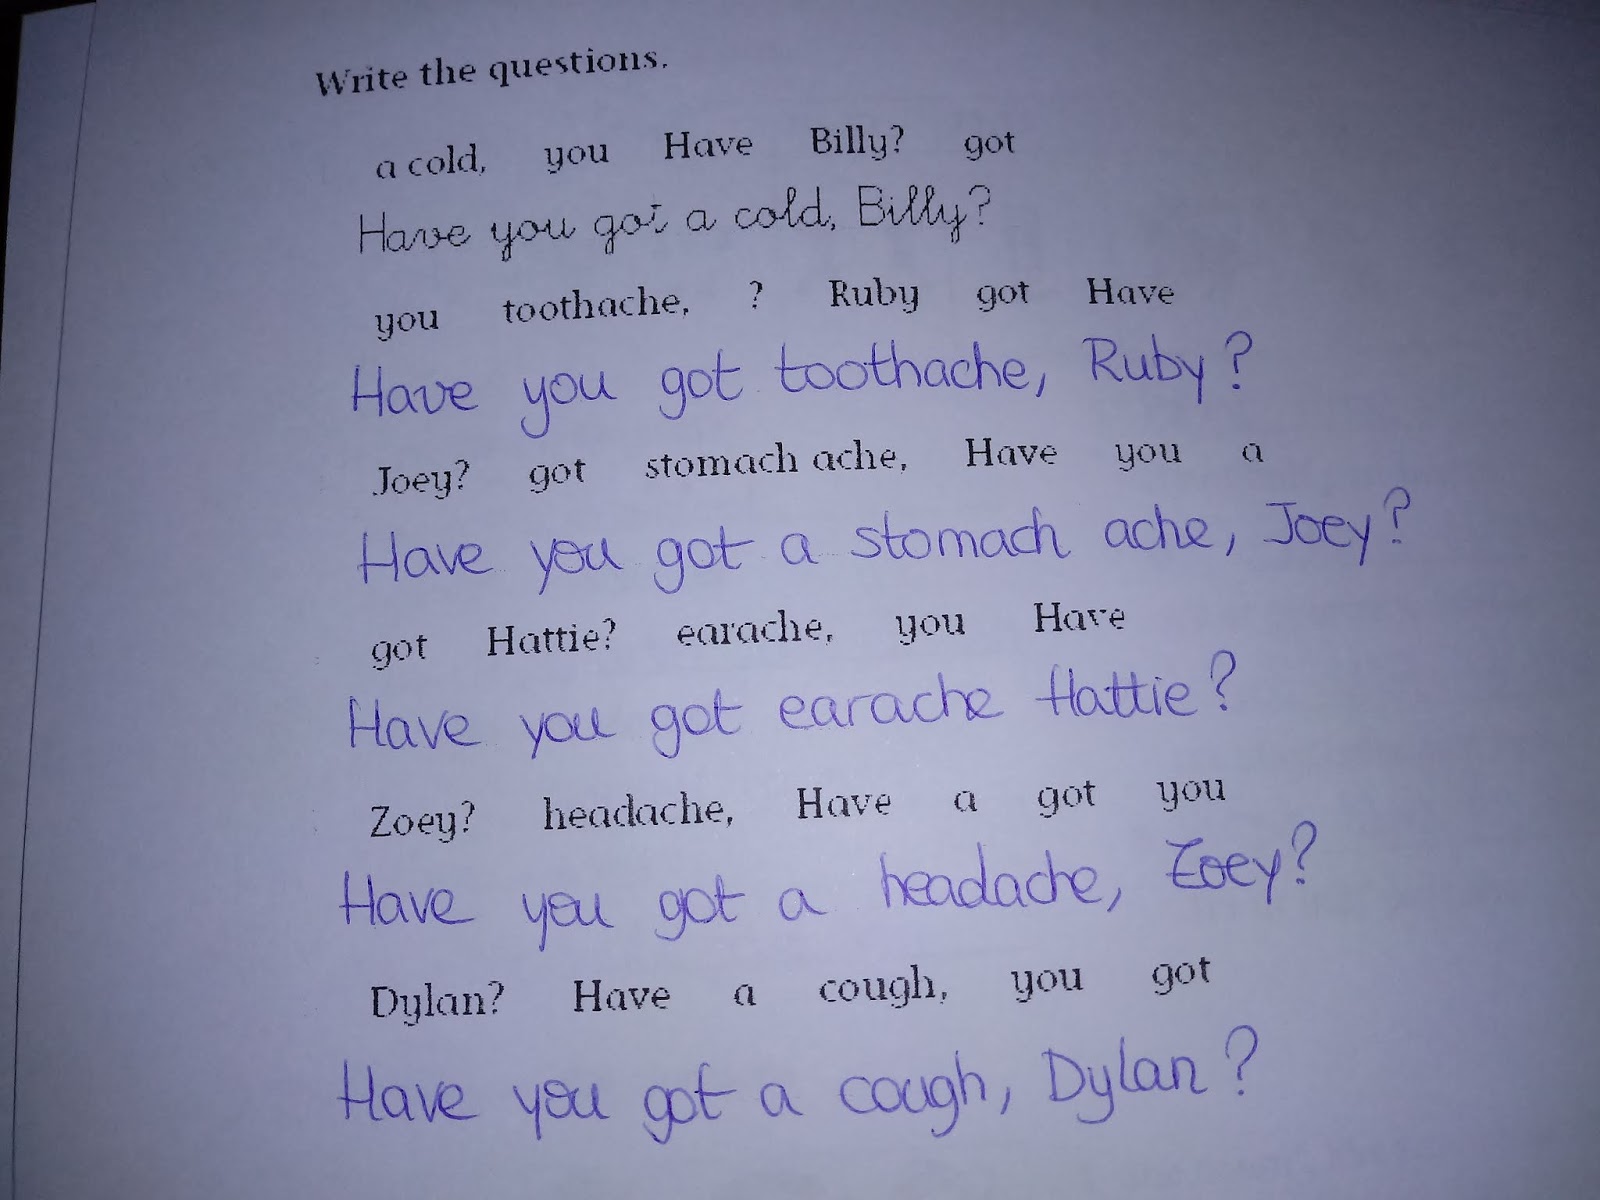 Write the questions.
a cold, you Have Billy? got
Have you got a cold, Billy?
you toothache, ? Ruby got Have
Have you got toothache, Ruby?
Joey? got stomach ache, Have you a
Have you got a stomach ache, Joey?
got Hattie? earache, you Have
Have you got earache Hattie?
Zoey? headache, Have a got you
Have you got a headache, Zoey?
Dylan? Have a cough, you got
Have you got a cough, Dylan?